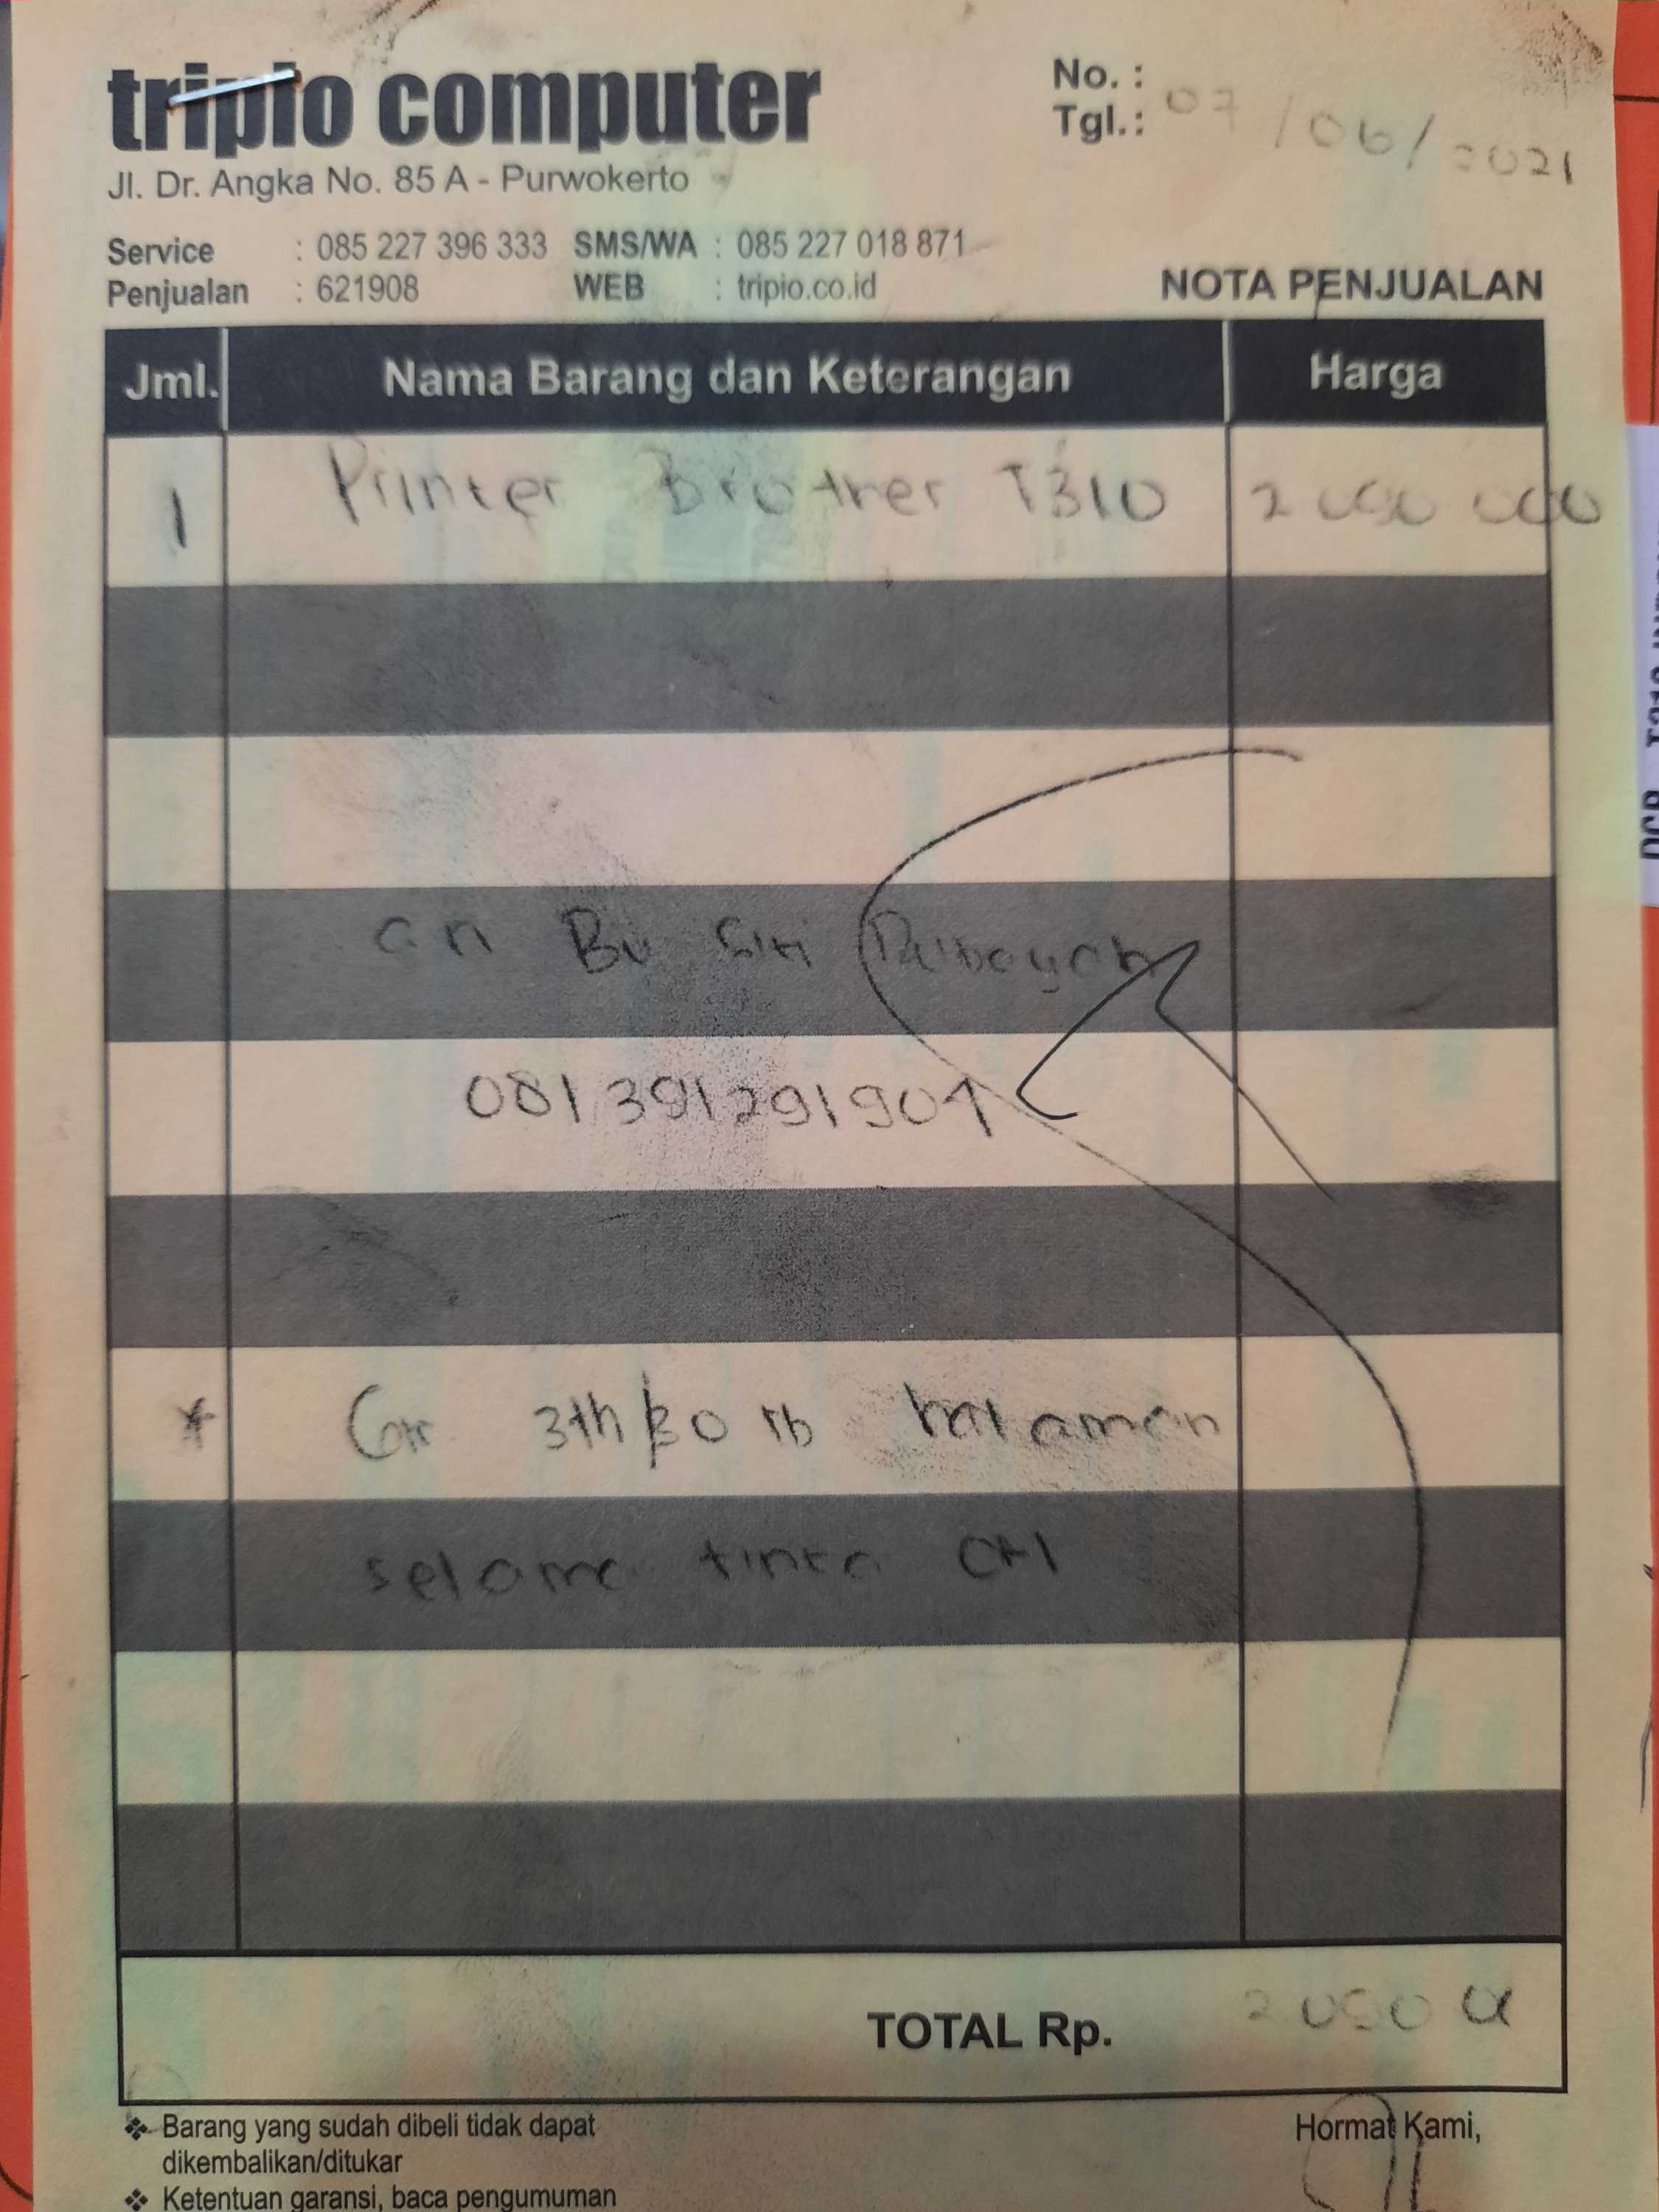 tripio computer
No. :
Tgl.: 07/06/2021
Jl. Dr. Angka No. 85 A - Purwokerto
Service : 085 227 396 333 SMS/WA : 085 227 018 871
Penjualan : 621908 WEB : tripio.co.id
NOTA PENJUALAN
Jml. Nama Barang dan Keterangan Harga
1 Printer Brother T310 2 050 000
an Bu Siti
081391291901
* Gar 3th/30 rb halaman
selama tinta ORI
TOTAL Rp. 2 050
❖ Barang yang sudah dibeli tidak dapat
dikembalikan/ditukar
❖ Ketentuan garansi, baca pengumuman
Hormat Kami,